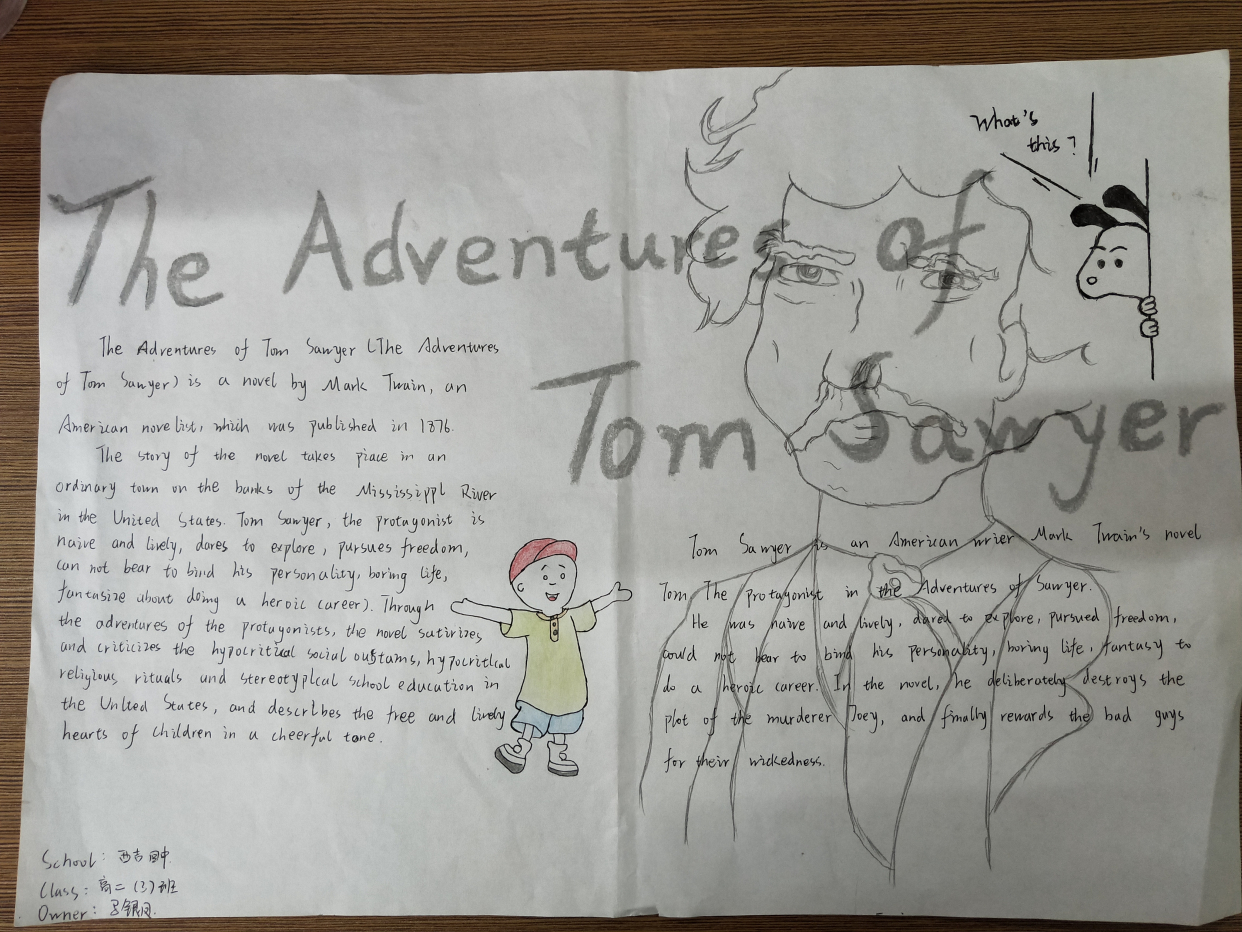 The Adventures of
Tom Sawyer
What's
this?
The Adventures of Tom Sawyer (The Adventures
of Tom Sawyer) is a novel by Mark Twain, an
American novelist, which was published in 1876.
The story of the novel takes place in an
ordinary town on the banks of the Mississippi River
in the United States. Tom Sawyer, the protagonist is
naive and lively, dares to explore, pursues freedom,
can not bear to bind his personality, boring life,
fantasize about doing a heroic career). Through
the adventures of the protagonists, the novel satirizes
and criticizes the hypocritical social oustams, hypocritical
religious rituals and stereotypical school education in
the United States, and describes the free and lively
hearts of children in a cheerful tone.
Tom Sawyer is an American wrier Mark Twain's novel
Tom The protagonist in the Adventures of Sawyer.
He was naive and lively, dared to explore, pursued freedom,
could not bear to bind his personality, boring life, fantasy to
do a heroic career. In the novel, he deliberately destroys the
plot of the murderer Joey, and finally rewards the bad guys
for their wickedness.
School: 西吉回中
Class: 高二(3)班
Owner: